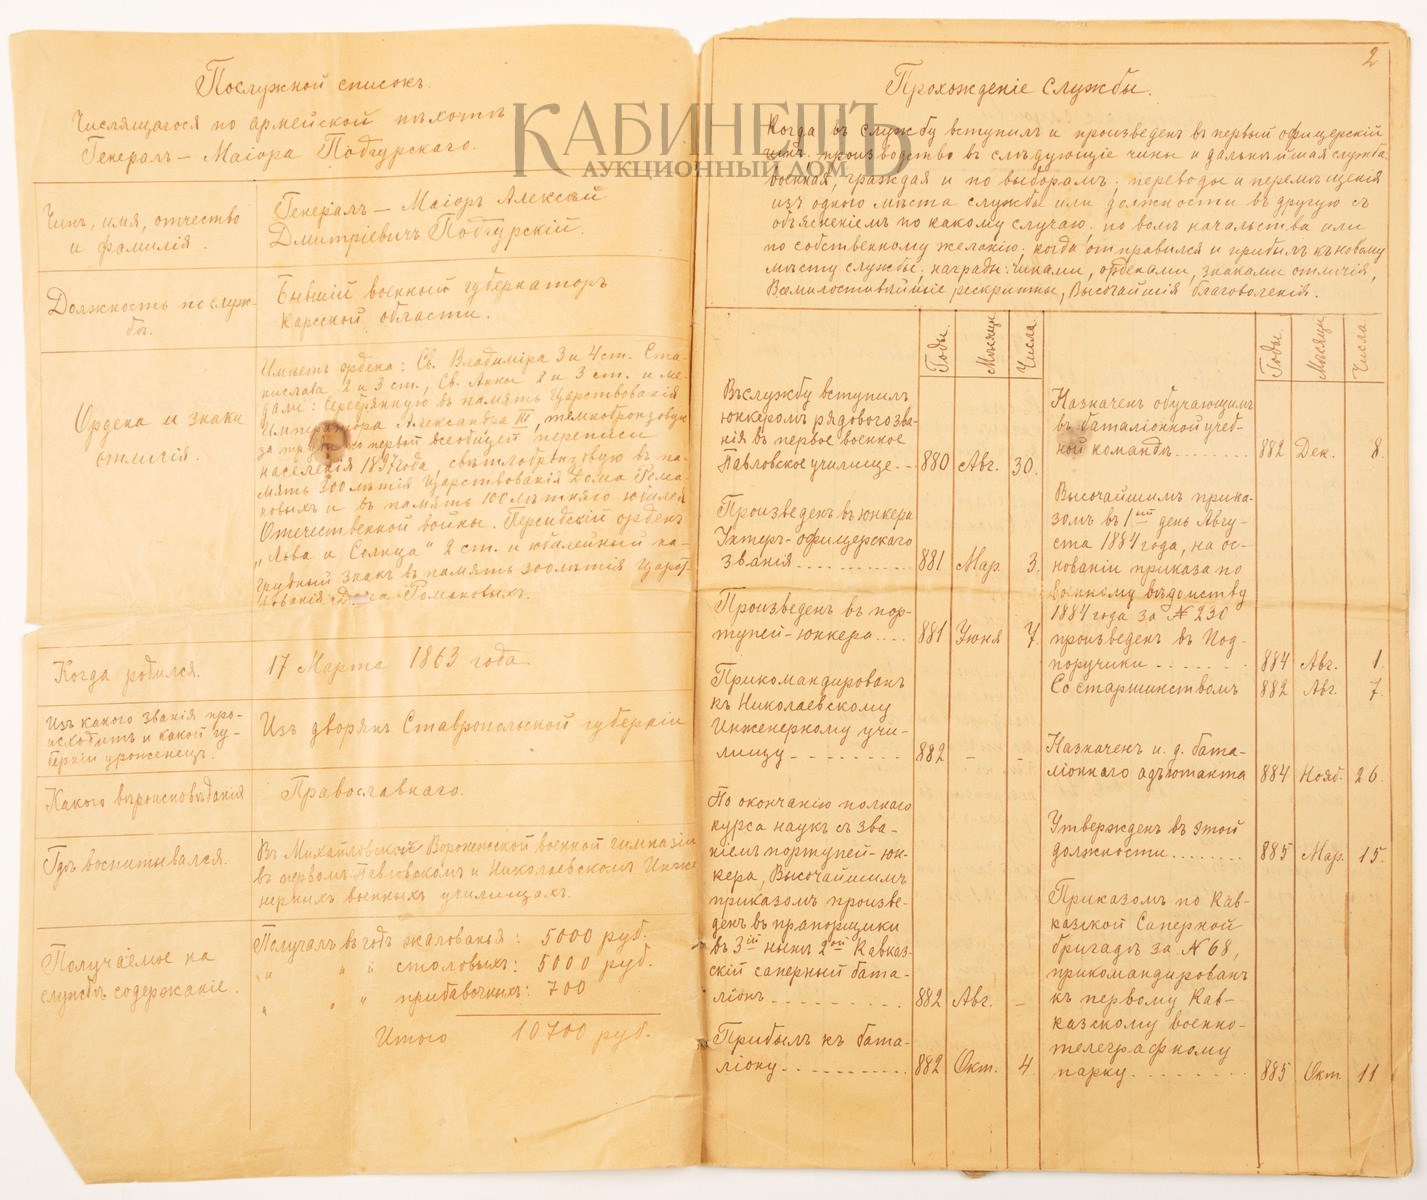 Послужной списокъ.
Числящагося по армейской пѣхотѣ
Генералъ-Маіора Подгурскаго.
Чинъ, имя, отчество
и фамилія.
Генералъ-Маіоръ Алексѣй
Дмитріевичъ Подгурскій.
Должность по служ-
бѣ.
Бывшій военный губернаторъ
Карсской области.
Ордена и знаки
отличія.
Имѣетъ ордена: Св. Владиміра 3 и 4 ст. Ста-
нислава 2 и 3 ст., Св. Анны 2 и 3 ст. и ме-
дали: Серебрянную въ память Царствованія
Императора Александра III, темнобронзовую
за первой всеобщей переписи
населенія 1897 года, свѣтлобронзовую въ па-
мять 300 лѣтія Царствованія Дома Рома-
новыхъ и въ память 100 лѣтняго юбилея
Отечественной войны. Персидскій орденъ
„Льва и Солнца" 2 ст. и юбилейный на-
грудный знакъ въ память 300 лѣтія Царст-
вованія Дома Романовыхъ.
Когда родился.
17 Марта 1863 года.
Изъ какого званія про-
исходитъ и какой гу-
берніи уроженецъ.
Изъ дворянъ Ставропольской губерніи
Какого вѣроисповѣданія
Православнаго.
Гдѣ воспитывался.
Въ Михайловской Воронежской военной гимназіи
въ первомъ Павловскомъ и Николаевскомъ Инже
нерныхъ военныхъ училищахъ.
Получаемое на
службѣ содержаніе.
Получалъ въ годъ жалованія: 5000 руб.
„ „ „ столовыхъ: 5000 руб.
„ „ „ прибавочныхъ: 700
Итого 10700 руб.
КАБИНЕТЪ
АУКЦИОННЫЙ ДОМ
2
Прохожденіе службы.
Когда въ службу вступилъ и произведенъ въ первый офицерскій
чинъ; производство въ слѣдующіе чины и дальнѣйшая служба
военная, граждая и по выборамъ; переводы и перемѣщенія
изъ одного мѣста службы или должности въ другую съ
объясненіемъ по какому случаю; по волѣ начальства или
по собственному желанію; когда отправился и прибылъ къ новому
мѣсту службы; награды: чинами, орденами, знаками отличія,
Всемилостивѣйшіе рескрипты, Высочайшія благоволенія.
Годы. Мѣсяцы Числа.
Въ службу вступилъ
юнкеромъ рядового зва-
нія въ первое военное
Павловское училище.-- 880 Авг. 30.
Произведенъ въ юнкера
Унтеръ-офицерскаго
званія........... 881 Мар. 3.
Произведенъ въ пор-
тупей-юнкера.... 881 Іюня 7.
Прикомандированъ
къ Николаевскому
Инженерному учи-
лищу-------- 882 - -
По окончанію полнаго
курса наукъ съ зва-
ніемъ портупей-юн-
кера, Высочайшимъ
приказомъ произве-
денъ въ прапорщики
въ 3ій нынѣ 2ой Кавказ-
скій саперный бата-
ліонъ.......... 882 Авг. -
Прибылъ къ бата-
ліону.......... 882 Окт. 4.
Годы. Мѣсяцы Числа.
Назначенъ обучающимъ
въ баталіонной учеб-
ной командѣ....... 882 Дек. 8.
Высочайшимъ прика-
зомъ въ 1ый день Авгу-
ста 1884 года, на ос-
нованіи приказа по
Военному вѣдомству
1884 года за № 230
произведенъ въ Под-
поручики....... 884 Авг. 1.
Со старшинствомъ 882 Авг. 7.
Назначенъ и. д. бата-
ліоннаго адъютанта 884 Нояб. 26.
Утвержденъ въ этой
должности........ 885 Мар. 15.
Приказомъ по Кав-
казской Саперной
бригадѣ за № 68,
прикомандированъ
къ первому Кав-
казскому военно-
телеграфному
парку........ 885 Окт. 11